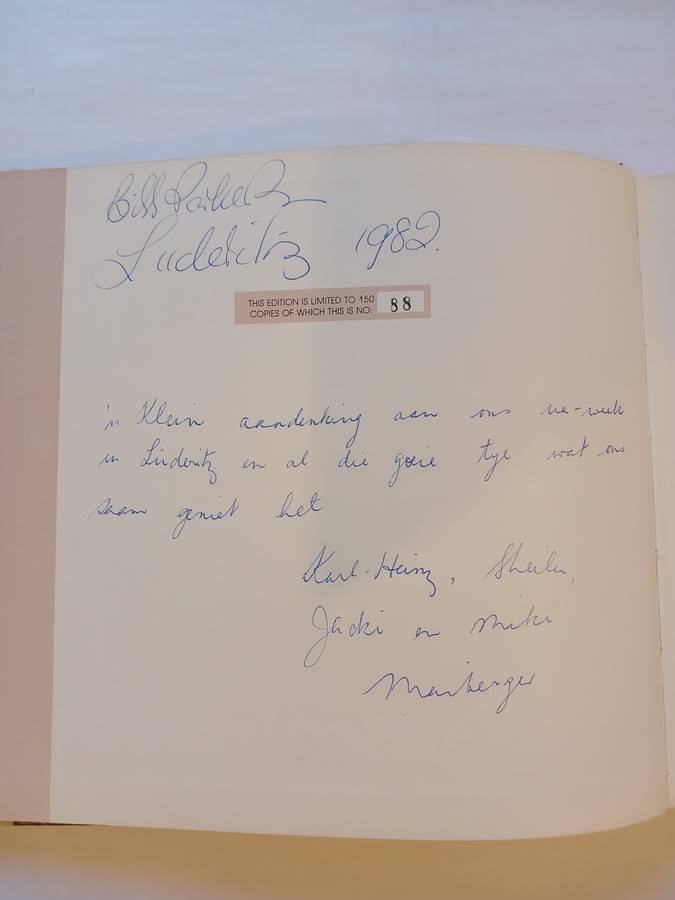 Bill
Lüderitz 1982.
THIS EDITION IS LIMITED TO 150
COPIES OF WHICH THIS IS NO: 88
'n Klein aandenking aan ons na-week
in Lüderitz en al die goeie tye wat ons
saam geniet het.
Karl-Heinz, Sheila,
Jacki en Miki